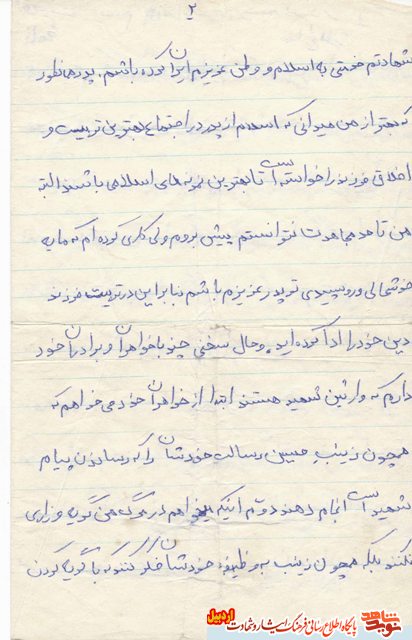 ۲
شهادتم خدمتی به اسلام و وطن عزیزم ایران کرده باشم. پدر همانطور
که بهتر از من میدانی که اسلام از پدر در اجتماع بهترین تربیت و
اخلاق فرزند را خواسته است تا بهترین نمونه های اسلامی باشند البته
من تا حد مجاهدت نتوانستم پیش بروم ولی کاری کرده ام که مایه
خوشحالی و روسپیدی تو پدر عزیزم باشم بنابراین در تربیت فرزند
دین خود را ادا کرده اید. و حال سخنی چند با خواهران و برادران خود
دارم که وارثین شهید هستند ابتدا از خواهران خود می خواهم که
همچون زینب حسین رسالت خودشان را که رساندن پیام
شهید است انجام دهند دوم اینکه میخواهم در مرگ من گریه و زاری
نکنند بلکه همچون زینب به وظیفه خودشان عمل کنند که با گریه کردن
نوید شاهد
پایگاه اطلاع رسانی فرهنگ ایثار و شهادت
اردبیل